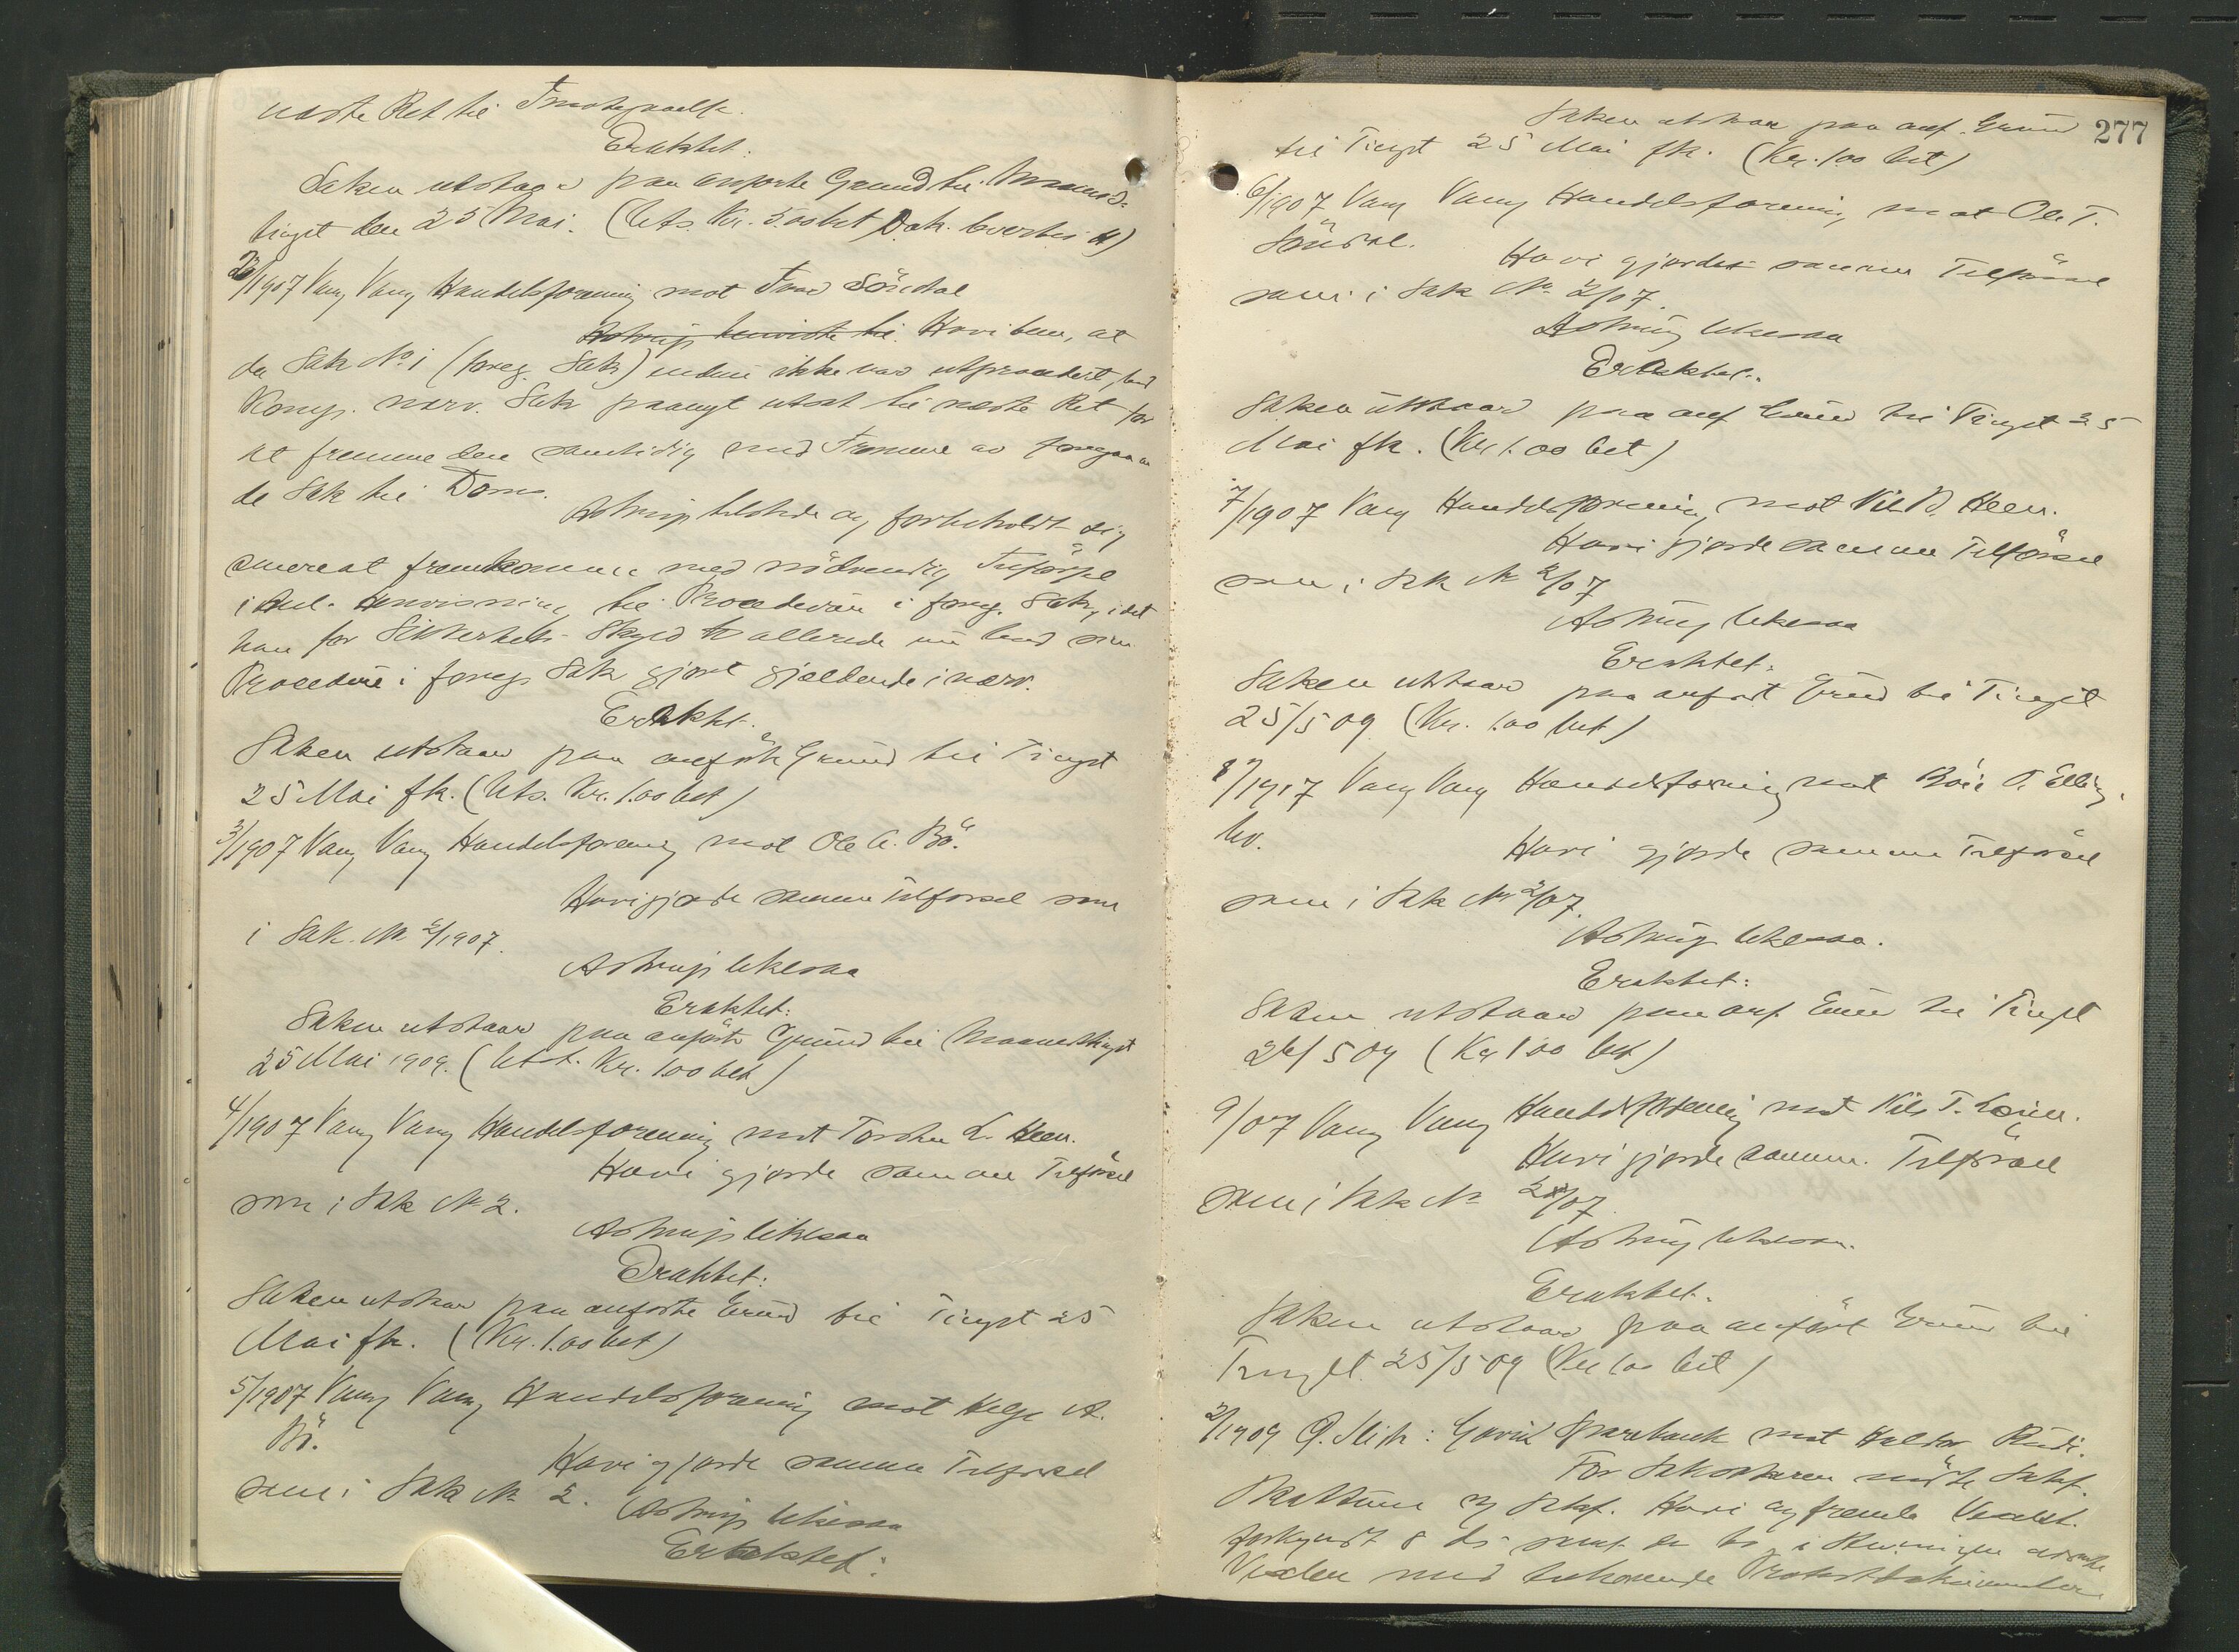 næste Ret til Imøtegaaelse.
Eraktet:
Saken utstaar paa anførte Grund til Maaneds-
tinget den 25 Mai. (Uts. Kr. 5.00 bet Dok. lever til H)
2/1907 Vang Vang Handelsforening mot Ivar Söndal
Astrup henviste til. Havi bem, at
da Sak No 1 (foreg. Sak) endnu ikke var utprocedert, fand
Komp. nærv. Sak paangt utsat til næste Ret for
at fremme den samtidig med Fremme av foregaaen
de Sak til Dom.
Astrup tilstede og forbeholdt sig
senere at fremkomme med nödvendig Tilförsel
i Anl. Henvisning til Proceduren i foreg. Sak, idet
han for Sikkerhets Skyld allerede nu hadd sin
Procedure i foreg. Sak gjort gjældende i nærv.
Eraktet.
Saken utstaar paa anförte Grund til Tinget
25 Mai fk. (Uts. Kr. 1.00 bet)
3/1907 Vang Vang Handelsforening mot Ole A. Bö.
Havi gjorde samme Tilførsel som
i Sak. No 2/1907.
Astrup likesaa
Eraktet:
Saken utstaar paa anförte Grund til Maanedstinget
25 Mai 1909. (Utst. Kr. 1.00 bet.)
4/1907 Vang Vang Handelsforening mot Torsten L. Heen.
Havi gjorde samme Tilførsel
som i Sak No 2.
Astrup likesaa
Eraktet:
Saken utstaar paa anførte Grund til Tinget 25
Mai fk. (Kr. 1.00 bet)
5/1907 Vang Vang Handelsforening mot Helge A.
Bö.
Havi gjorde samme Tilførsel
som i Sak No 2.
Astrup likesaa
Eraktet:
277
Saken utstaar paa anf. Grund
til Tinget 25 Mai fk. (Kr. 1.00 bet)
6/1907 Vang Vang Handelsforening mot Ole T.
Söndal.
Havi gjorde samme Tilförsel
som i Sak No 2/07.
Astrup likesaa
Eraktet.
Saken utstaar paa anf Grund til Tinget 25
Mai fk. (Kr 1.00 bet)
7/1907 Vang Handelsforening mot Nils N. Heen.
Havi gjorde samme Tilförsel
som i Sak No 2/07
Astrup likesaa
Eraktet.
Saken utstaar paa anført Grund til Tinget
25/5 09 (Kr. 1.00 bet)
8/1907 Vang Vang Handelsforening mot Böie O. Elling-
bo.
Havi gjorde samme Tilførsel
som i Sak No 2/07.
Astrup likesaa.
Eraktet:
Saken utstaar paa anf. Grund til Tinget
25/5 09 (Kr 1.00 bet)
9/07 Vang Vang Handelsforening mot Nils T.
Havi gjorde samme Tilförsel
som i Sak No 2/07.
Astrup likesaa.
Eraktet.
Saken utstaar paa anført Grund til
Tinget 25/5 09 (Kr 1.00 bet)
2/1909 Ö. Slidr: Sparebank mot Haldor Rudi.
For Saksökeren mödte Sakf.
ved Sakf. Havi og fremla
forkyndt 8 ds samt de i Stevningen
Vexlen med Protestdokumenter